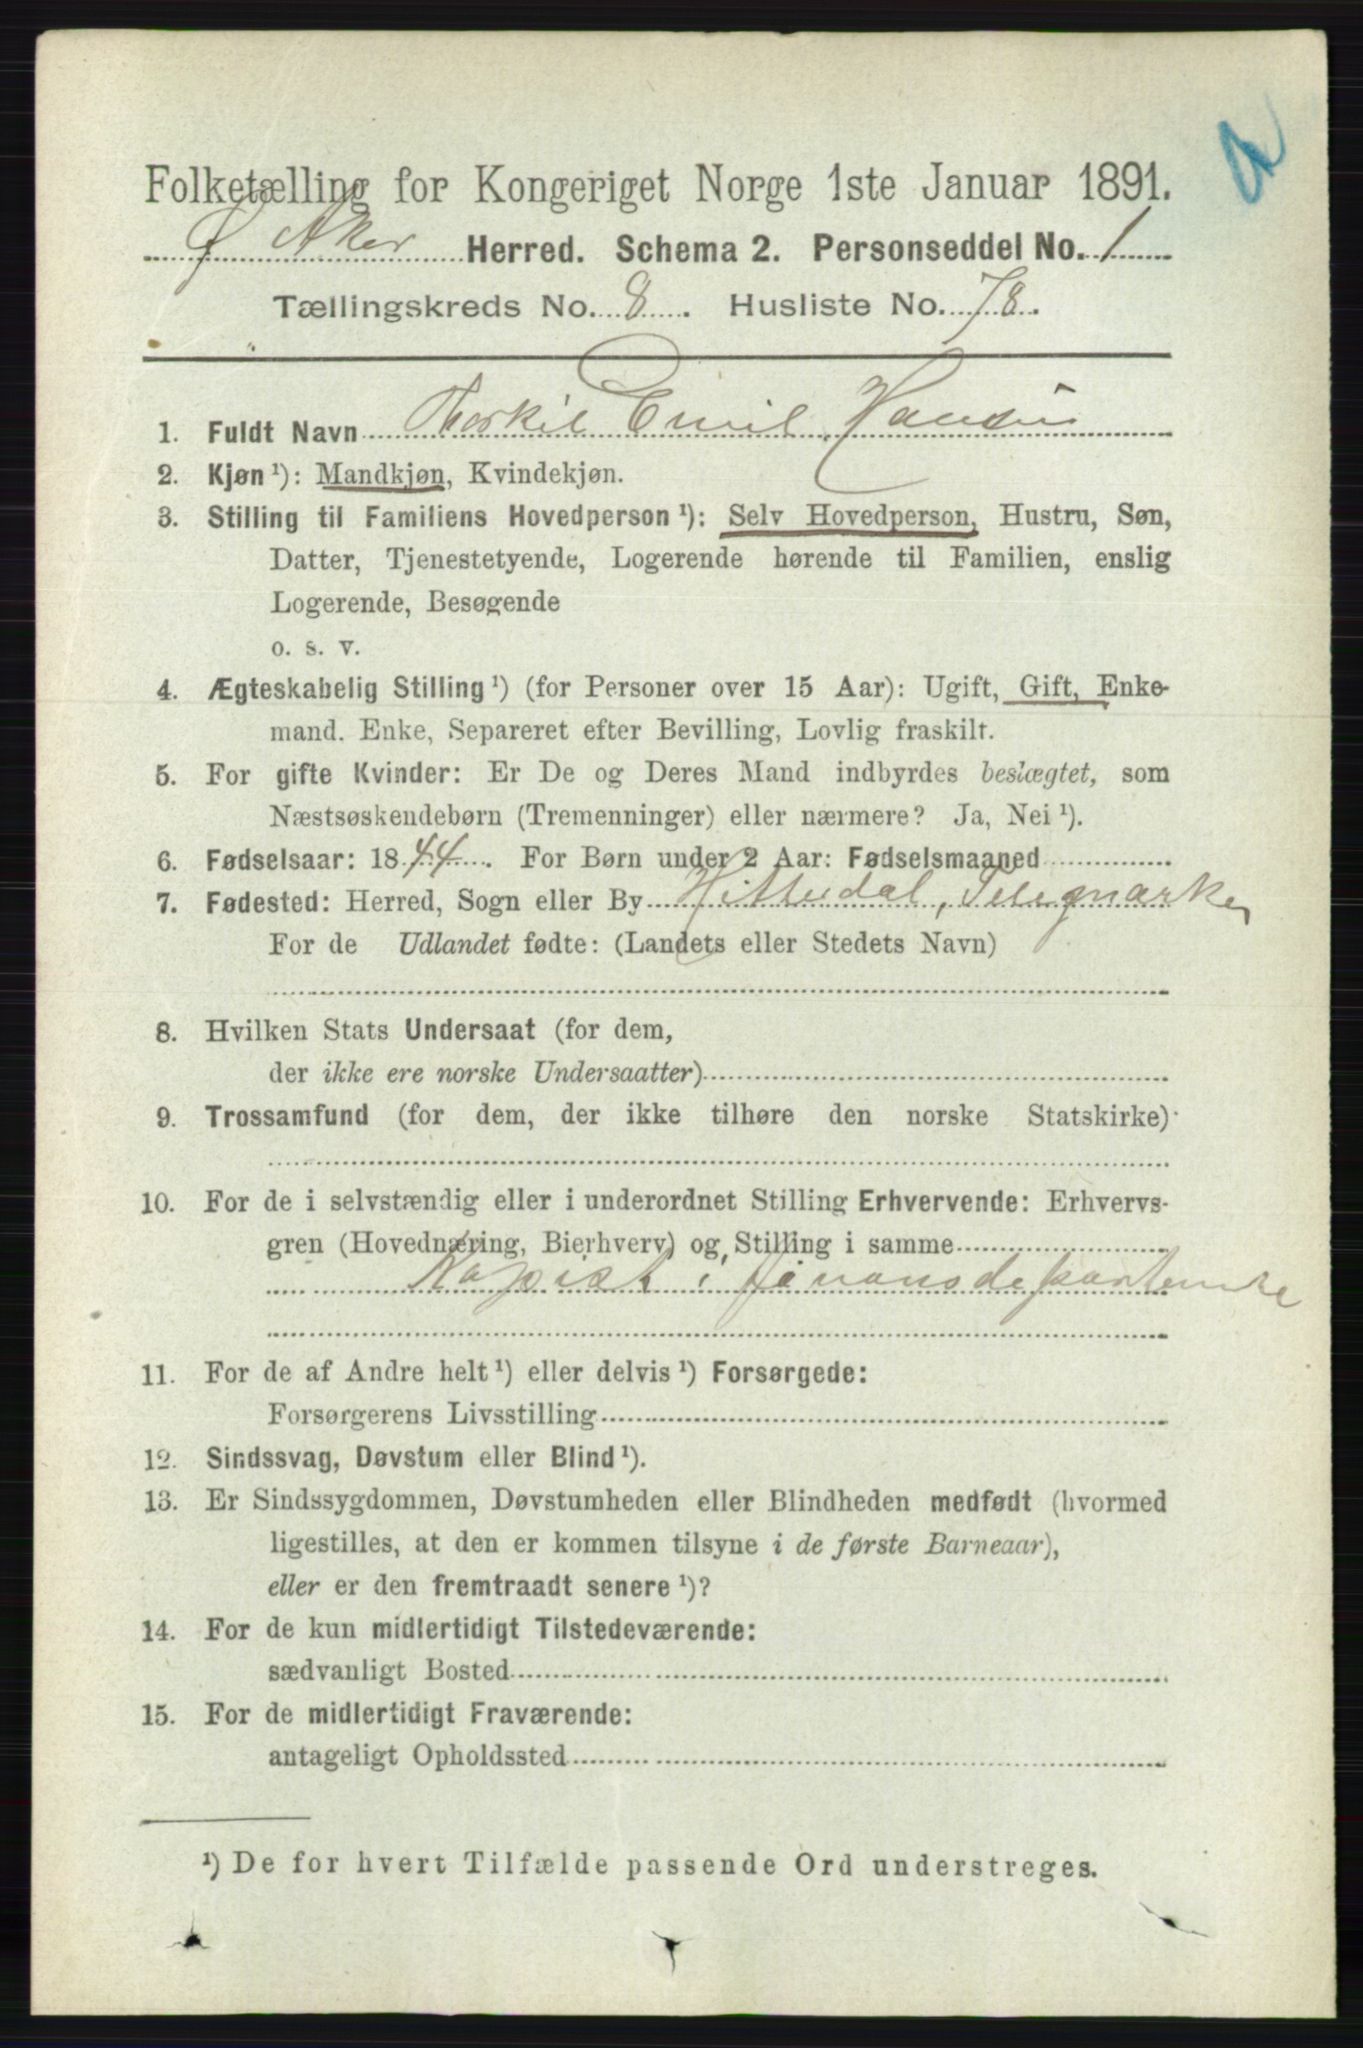 a
Folketælling for Kongeriget Norge 1ste Januar 1891.
Ø Aker Herred. Schema 2. Personseddel No. 1
Tællingskreds No. 8. Husliste No. 78.
1. Fuldt Navn Thorkil Emil Hansen
2. Kjøn ¹): Mandkjøn, Kvindekjøn.
3. Stilling til Familiens Hovedperson ¹): Selv Hovedperson, Hustru, Søn,
Datter, Tjenestetyende, Logerende hørende til Familien, enslig
Logerende, Besøgende
o. s. v.
4. Ægteskabelig Stilling ¹) (for Personer over 15 Aar): Ugift, Gift, Enke-
mand. Enke, Separeret efter Bevilling, Lovlig fraskilt.
5. For gifte Kvinder: Er De og Deres Mand indbyrdes beslægtet, som
Næstsøskendebørn (Tremenninger) eller nærmere? Ja, Nei ¹).
6. Fødselsaar: 1844. For Børn under 2 Aar: Fødselsmaaned
7. Fødested: Herred, Sogn eller By Hitterdal, Telemarken
For de Udlandet fødte: (Landets eller Stedets Navn)
8. Hvilken Stats Undersaat (for dem,
der ikke ere norske Undersaatter)
9. Trossamfund (for dem, der ikke tilhøre den norske Statskirke)
10. For de i selvstændig eller i underordnet Stilling Erhvervende: Erhvervs-
gren (Hovednæring, Bierhverv) og Stilling i samme
Kopist i Finansdepartemente
11. For de af Andre helt ¹) eller delvis ¹) Forsørgede:
Forsørgerens Livsstilling
12. Sindssvag, Døvstum eller Blind ¹).
13. Er Sindssygdommen, Døvstumheden eller Blindheden medfødt (hvormed
ligestilles, at den er kommen tilsyne i de første Barneaar),
eller er den fremtraadt senere ¹)?
14. For de kun midlertidigt Tilstedeværende:
sædvanligt Bosted
15. For de midlertidigt Fraværende:
antageligt Opholdssted
¹) De for hvert Tilfælde passende Ord understreges.